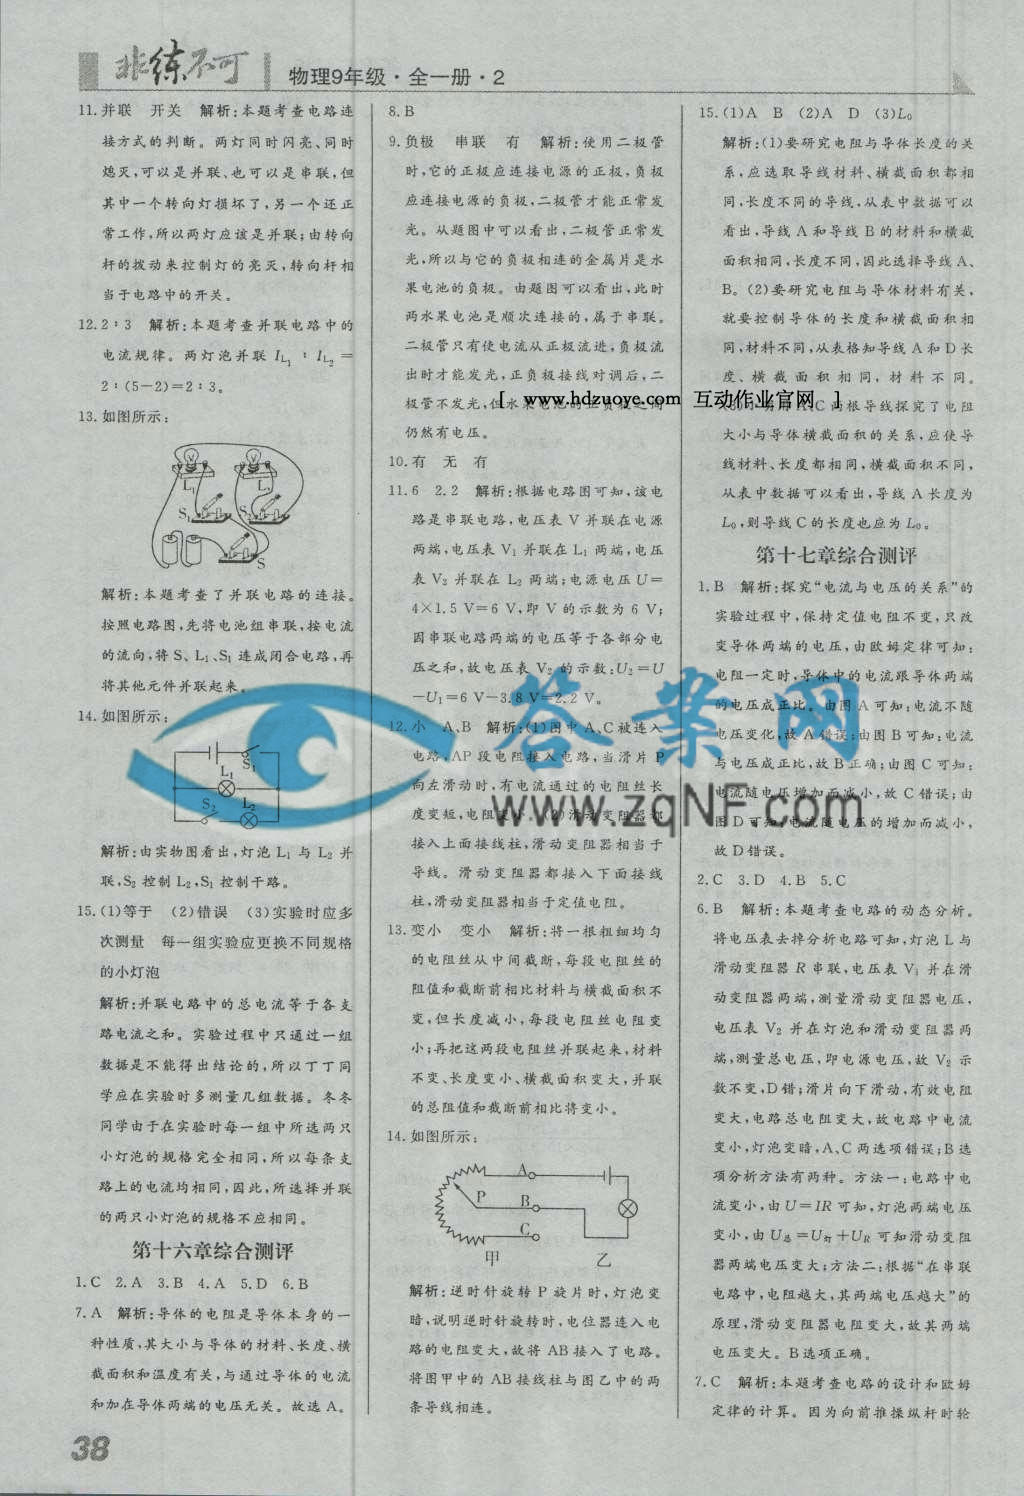 非练不可
物理9年级·全一册·2
11.并联　开关　解析:本题考查电路连
接方式的判断。两灯同时闪亮、同时
熄灭,可以是并联、也可以是串联,但
其中一个转向灯损坏了,另一个还正
常工作,所以两灯应该是并联;由转向
杆的拨动来控制灯的亮灭,转向杆相
当于电路中的开关。
12.2∶3　解析:本题考查并联电路中的
电流规律。两灯泡并联 IL1∶IL2=
2∶(5-2)=2∶3。
13.如图所示:
L1
L2
S1
S2
S
解析:本题考查了并联电路的连接。
按照电路图,先将电池组串联,按电流
的流向,将 S、L1、S1 连成闭合电路,再
将其他元件并联起来。
14.如图所示:
S1
L1
S2
L2
解析:由实物图看出,灯泡 L1 与 L2 并
联,S2 控制 L2,S1 控制干路。
15.(1)等于　(2)错误　(3)实验时应多
次测量　每一组实验应更换不同规格
的小灯泡
解析:并联电路中的总电流等于各支
路电流之和。实验过程中只通过一组
数据是不能得出结论的,所以丁丁同
学应在实验时多测量几组数据。冬冬
同学由于在实验时每一组中所选两只
小灯泡的规格完全相同,所以每条支
路上的电流均相同,因此,所选择并联
的两只小灯泡的规格不应相同。
第十六章综合测评
1.C　2.A　3.B　4.A　5.D　6.B
7.A　解析:导体的电阻是导体本身的一
种性质,其大小与导体的材料、长度、横
截面积和温度有关,与通过导体的电流
和加在导体两端的电压无关。故选 A。
38
8.B
9.负极　串联　有　解析:使用二极管
时,它的正极应连接电源的正极,负极
应连接电源的负极,二极管才能正常发
光。从题图中可以看出,二极管正常发
光,所以与它的负极相连的金属片是水
果电池的负极。由题图可以看出,此时
两水果电池是顺次连接的,属于串联。
二极管只有使电流从正极流进,负极流
出时才能发光,正负极接线对调后,二
极管不发光,但水果电池的正负极之间
仍然有电压。
[ www.hdzuoye.com 互动作业官网 ]
10.有　无　有
11.6　2.2　解析:根据电路图可知,该电
路是串联电路,电压表 V 并联在电源
两端,电压表 V1 并联在 L1 两端,电压
表 V2 并联在 L2 两端;电源电压 U=
4×1.5 V=6 V,即 V 的示数为 6 V;
因串联电路两端的电压等于各部分电
压之和,故电压表 V2 的示数:U2=U
-U1=6 V-3.8 V=2.2 V。
12.小　A、B　解析:(1)图中 A、C 被连入
电路,AP 段电阻接入电路,当滑片 P
向左滑动时,有电流通过的电阻丝长
度变短,电阻变小。(2)滑动变阻器都
接入上面接线柱,滑动变阻器相当于
导线。滑动变阻器都接入下面接线
柱,滑动变阻器相当于定值电阻。
13.变小　变小　解析:将一根粗细均匀
的电阻丝从中间截断,每段电阻丝的
阻值和截断前相比材料与横截面积不
变,但长度减小,每段电阻丝电阻变
小;再把这两段电阻丝并联起来,材料
不变、长度变小、横截面积变大,并联
的总阻值和截断前相比将变小。
14.如图所示:
A
P
B
C
甲
乙
解析:逆时针旋转 P 旋片时,灯泡变
暗,说明逆时针旋转时,电位器连入电
路的电阻变大,故将 AB 接入了电路。
将图甲中的 AB 接线柱与图乙中的两
条导线相连。
15.(1)A　B　(2)A　D　(3)L0
解析:(1)要研究电阻与导体长度的关
系,应选取导线材料、横截面积都相
同,长度不同的导线,从表中数据可以
看出,导线 A 和导线 B 的材料和横截
面积相同,长度不同,因此选择导线 A、
B。(2)要研究电阻与导体材料有关,
就要控制导体的长度和横截面积相
同,材料不同,从表格知导线 A 和 D 长
度、横截面积相同,材料不同。
(3)小明用 A、C 两根导线探究了电阻
大小与导体横截面积的关系,应使导
线材料、长度都相同,横截面积不同,
从表中数据可以看出,导线 A 长度为
L0,则导线 C 的长度也应为 L0。
第十七章综合测评
1.B　解析:探究“电流与电压的关系”的
实验过程中,保持定值电阻不变,只改
变导体两端的电压,由欧姆定律可知:
电阻一定时,导体中的电流跟导体两端
的电压成正比。由图 A 可知:电流不随
电压变化,故 A 错误;由图 B 可知:电流
与电压成正比,故 B 正确;由图 C 可知:
电流随电压增加而减小,故 C 错误;由
图 D 可知:电流随电压的增加而减小,
故 D 错误。
2.C　3.D　4.B　5.C
6.B　解析:本题考查电路的动态分析。
将电压表去掉分析电路可知,灯泡 L 与
滑动变阻器 R 串联,电压表 V1 并在滑
动变阻器两端,测量滑动变阻器电压,
电压表 V2 并在灯泡和滑动变阻器两
端,测量总电压,即电源电压,故 V2 示
数不变,D 错;滑片向下滑动,有效电阻
变大,电路总电阻变大,故电路中电流
变小,灯泡变暗,A、C 两选项错误;B 选
项分析方法有两种。方法一:电路中电
流变小,由 U=IR 可知,灯泡两端电压
变小,由 U总=U灯+UR 可知滑动变阻
器两端电压变大;方法二:根据“在串联
电路中,电阻越大,其两端电压越大”的
原理,滑动变阻器电阻变大,故其两端
电压变大。B 选项正确。
7.C　解析:本题考查电路的设计和欧姆
定律的计算。因为向前推操纵杆时轮
答案网
www.zqNF.com